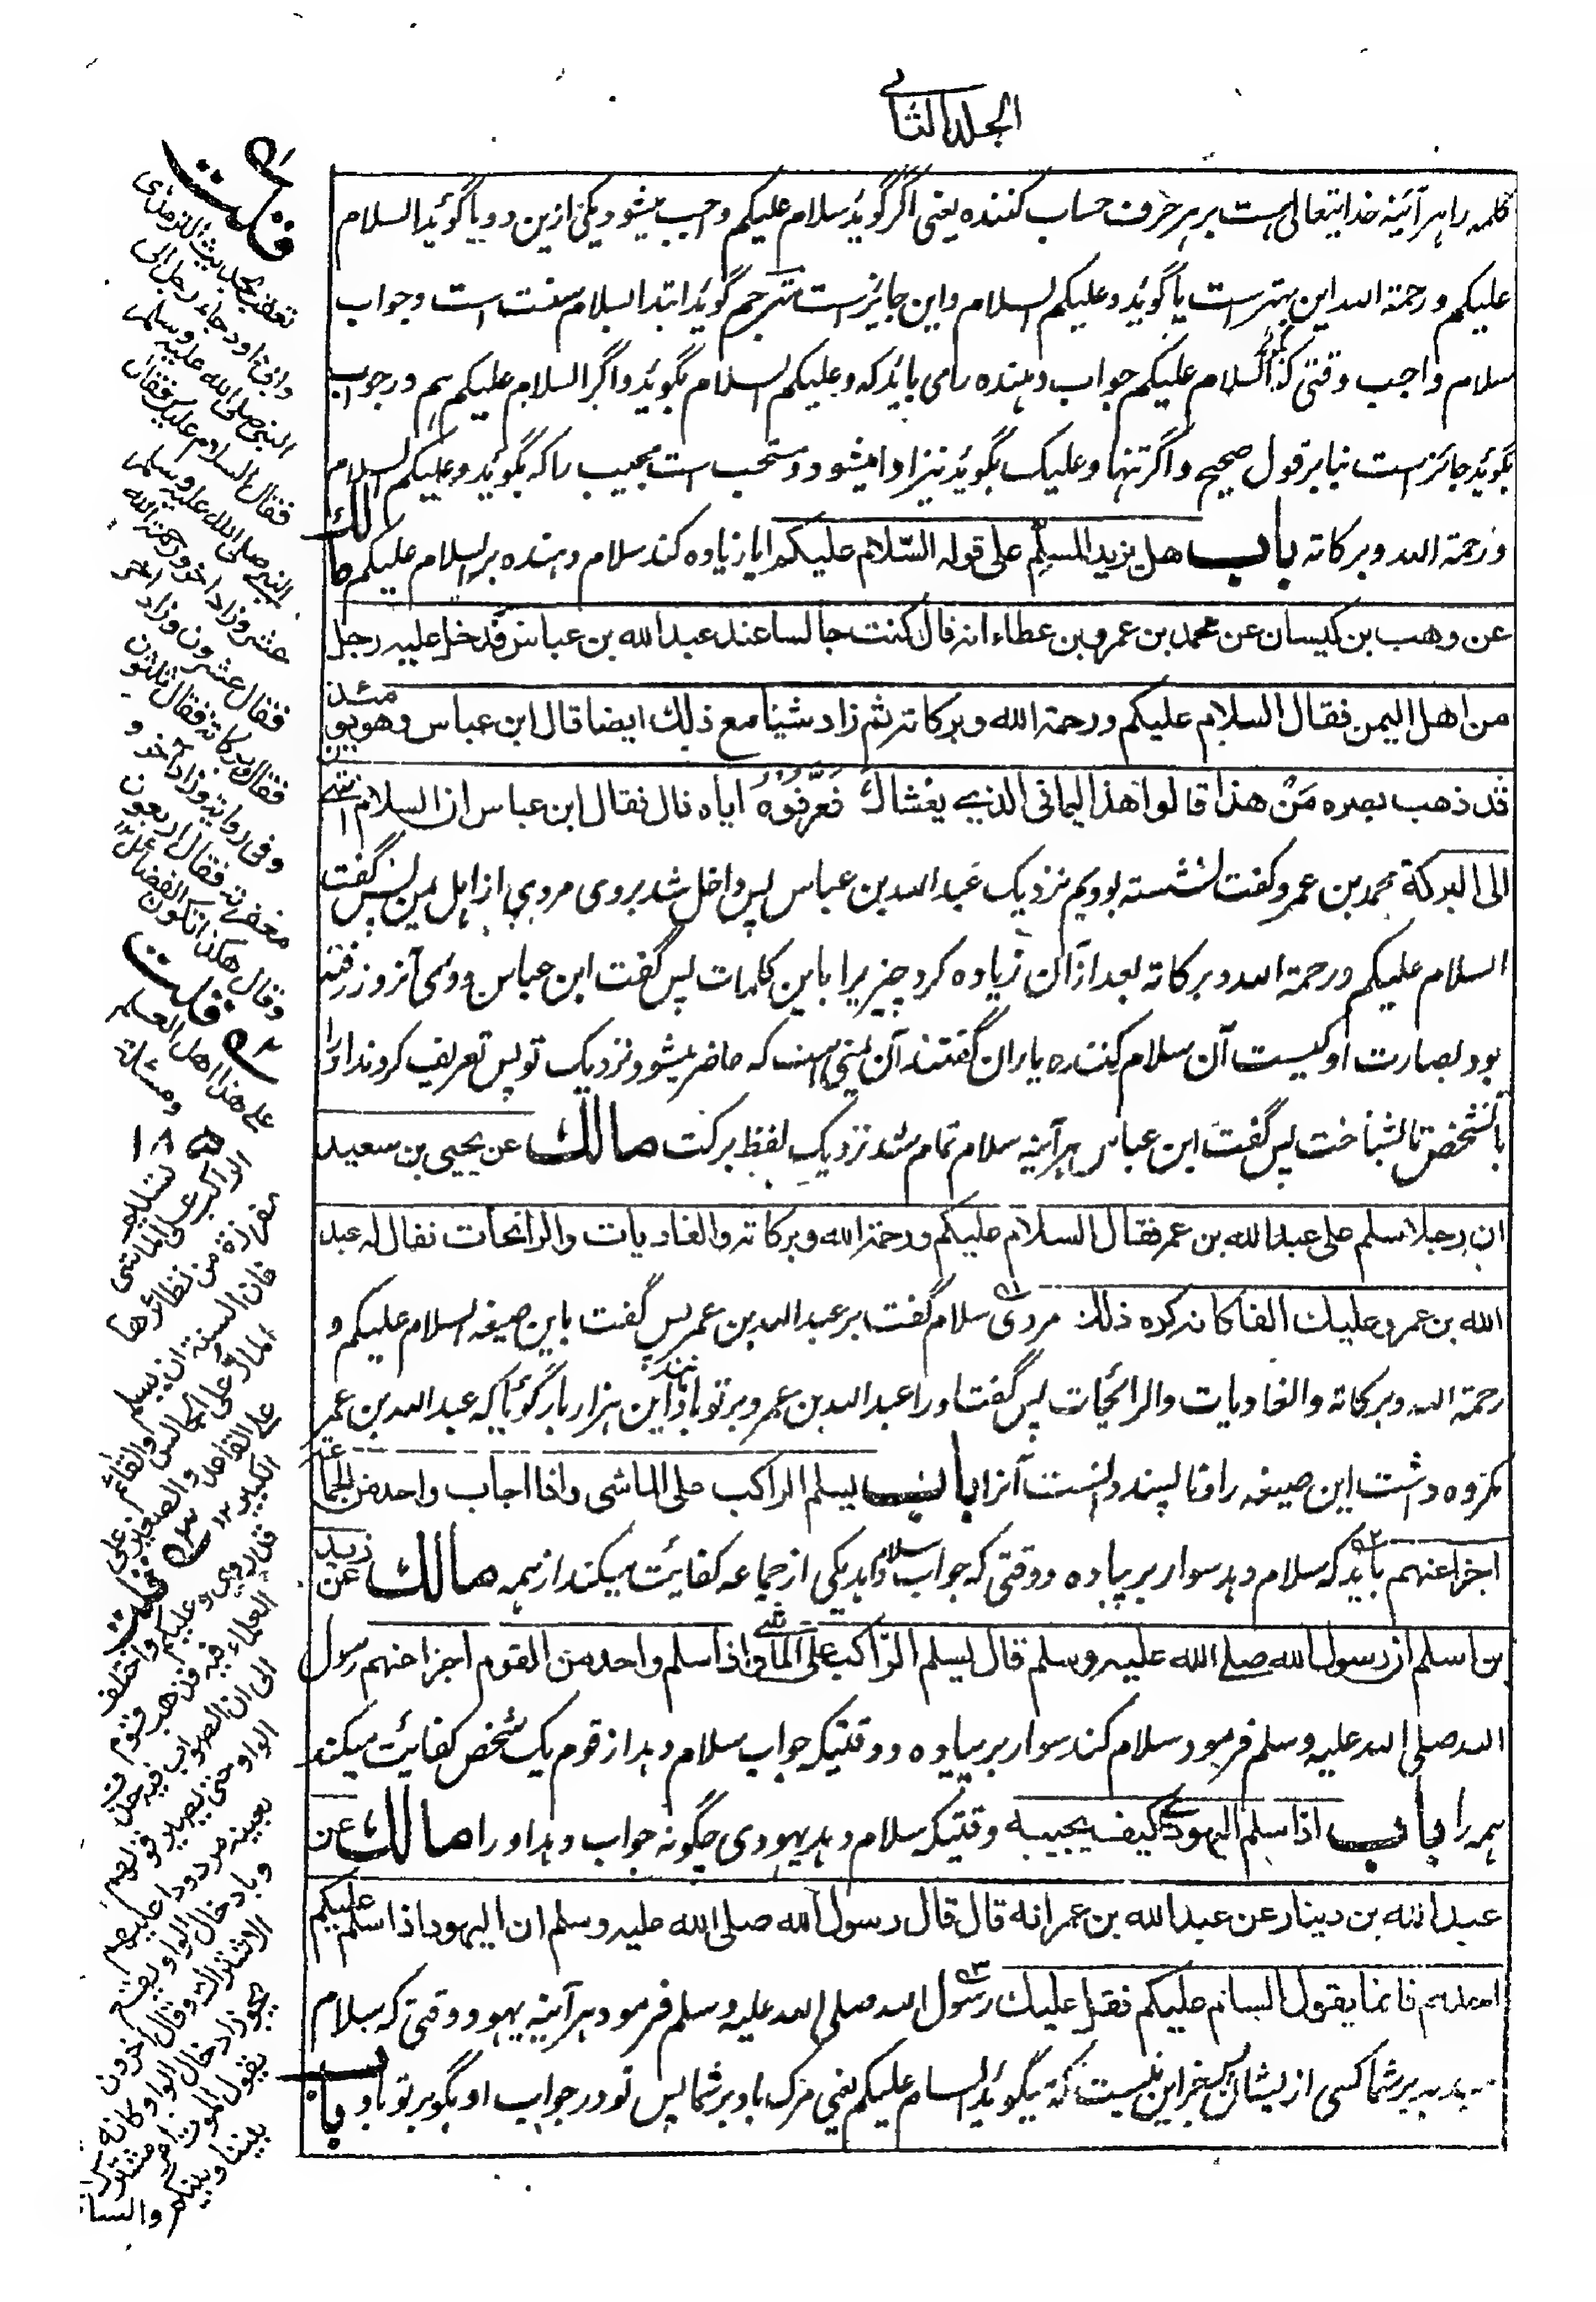 الجلد الثانی
کلمه را هر آئینه خدایتعالی هست بر هر حرف حساب کننده یعنی اگر گوید سلام علیکم واجب میشود یکی ازین دو یا گوید السلام
علیکم و رحمة الله این بهتر است یا گوید و علیکم السلام و این جایز است مترجم گوید ابتدا السلام سنت است و جواب
سلام واجب وقتی که السلام علیکم جواب دهنده را می باید که و علیکم السلام بگوید و اگر السلام علیکم هم در جواب
بگوید جائز است بنا بر قول صحیح و اگر تنها و علیک بگوید نیز ادا میشود و مستحب است مجیب را که بگوید و علیکم السلام
و رحمة الله و برکاته باب هل یزید المسلم علی قوله السلام علیکم ایا زیاده کند سلام دهنده بر السلام علیکم مالك
عن وهب بن کیسان عن محمد بن عمرو بن عطاء انه قال کنت جالسا عند عبد الله بن عباس فدخل علیه رجل
من اهل الیمن فقال السلام علیکم ورحمة الله وبرکاته ثم زاد شیئا مع ذلك ایضا قال ابن عباس وهو یومئذ
قد ذهب بصره مَنْ هذا قالوا هذا الیمانی الذی یغشاك فعرّفوه ایاه قال فقال ابن عباس ان السلام انتهی
الی البرکة محمد بن عمرو گفت نشسته بودیم نزدیک عبد الله بن عباس پس داخل شد بروی مردی از اهل یمن پس گفت
السلام علیکم و رحمة الله و برکاته بعد از آن زیاده کرد چیزیرا باین کلمات پس گفت ابن عباس و وی آنروز رفته
بود بصارت او کیست آن سلام کننده یاران گفتند آن یمنی است که حاضر میشود نزدیک تو پس تعریف کردند او را
بآنشخص تا بشناخت پس گفت ابن عباس هر آینه سلام تمام شد نزدیک لفظ برکت مالك عن یحیی بن سعید
ان رجلا سلم علی عبد الله بن عمر فقال السلام علیکم ورحمة الله وبرکاته والغادیات والرائحات فقال له عبد
الله بن عمر وعلیك الفا کانه کره ذلك مردی سلام گفت بر عبد الله بن عمر پس گفت باین صیغه السلام علیکم و
رحمة الله و برکاته والغادیات والرائحات پس گفت او را عبد الله بن عمر و بر تو باد این هزار بار گویا که عبد الله بن عمر
مکروه داشت این صیغه را و ناپسند دانست آنرا باب یسلم الراکب علی الماشی واذا اجاب واحد من الجماعة
اجزا عنهم باید که سلام دهد سوار بر پیاده و وقتی که جواب سلام داد یکی از جماعه کفایت میکند از همه مالك عن زید
بن اسلم ان رسول الله صلی الله علیه وسلم قال یسلم الراکب علی الماشی واذا سلم واحد من القوم اجزا عنهم رسول
الله صلی الله علیه وسلم فرمود سلام کند سوار بر پیاده و وقتیکه جواب سلام دهد از قوم یک شخص کفایت میکند
همه را باب اذا سلم الیهودی کیف یجیبه وقتیکه سلام دهد یهودی چگونه جواب دهد او را مالك عن
عبد الله بن دینار عن عبد الله بن عمر انه قال قال رسول الله صلی الله علیه وسلم ان الیهود اذا سلم علیکم
احدهم فانما یقول السام علیکم فقل علیك رسول الله صلی الله علیه وسلم فرمود هر آینه یهود وقتی که سلام
بدهد بر شما کسی از یشان پس جز این نیست که میگوید السام علیکم یعنی مرگ باد بر شما پس تو در جواب او بگو بر تو باد باب
قلت
تعقب بحدیث الترمذی
وابی داود جاء رجل الی
النبی صلی الله علیه وسلم
فقال السلام علیك فقال
النبی صلی الله علیه وسلم
عشر وزاد اخر ورحمة الله
فقال عشرون وزاد اخر
وبرکاته فقال ثلثون
وفی روایة وزاد آخر و
مغفرته فقال اربعون
وقال هکذا تکون الفضائل
قلت
علی هذا اهل العلم
الراکب علی الماشی
من نظائرها
فان السنة ان یسلم
المار علی الجالس والقائم
علی القاعد والصغیر علی
الکبیر
قلت
قد روی وعلیکم واختلف
العلماء فیه فذهب قوم
الی ان الصواب فیه حذف
الواو حتی یصیر قولهم
بعینه مردودا علیهم
وبادخال الواو یقع
الاشتراك وقال اخرون
یجوز ادخال الواو کانه
یقول الموت مشترك
بیننا وبینکم